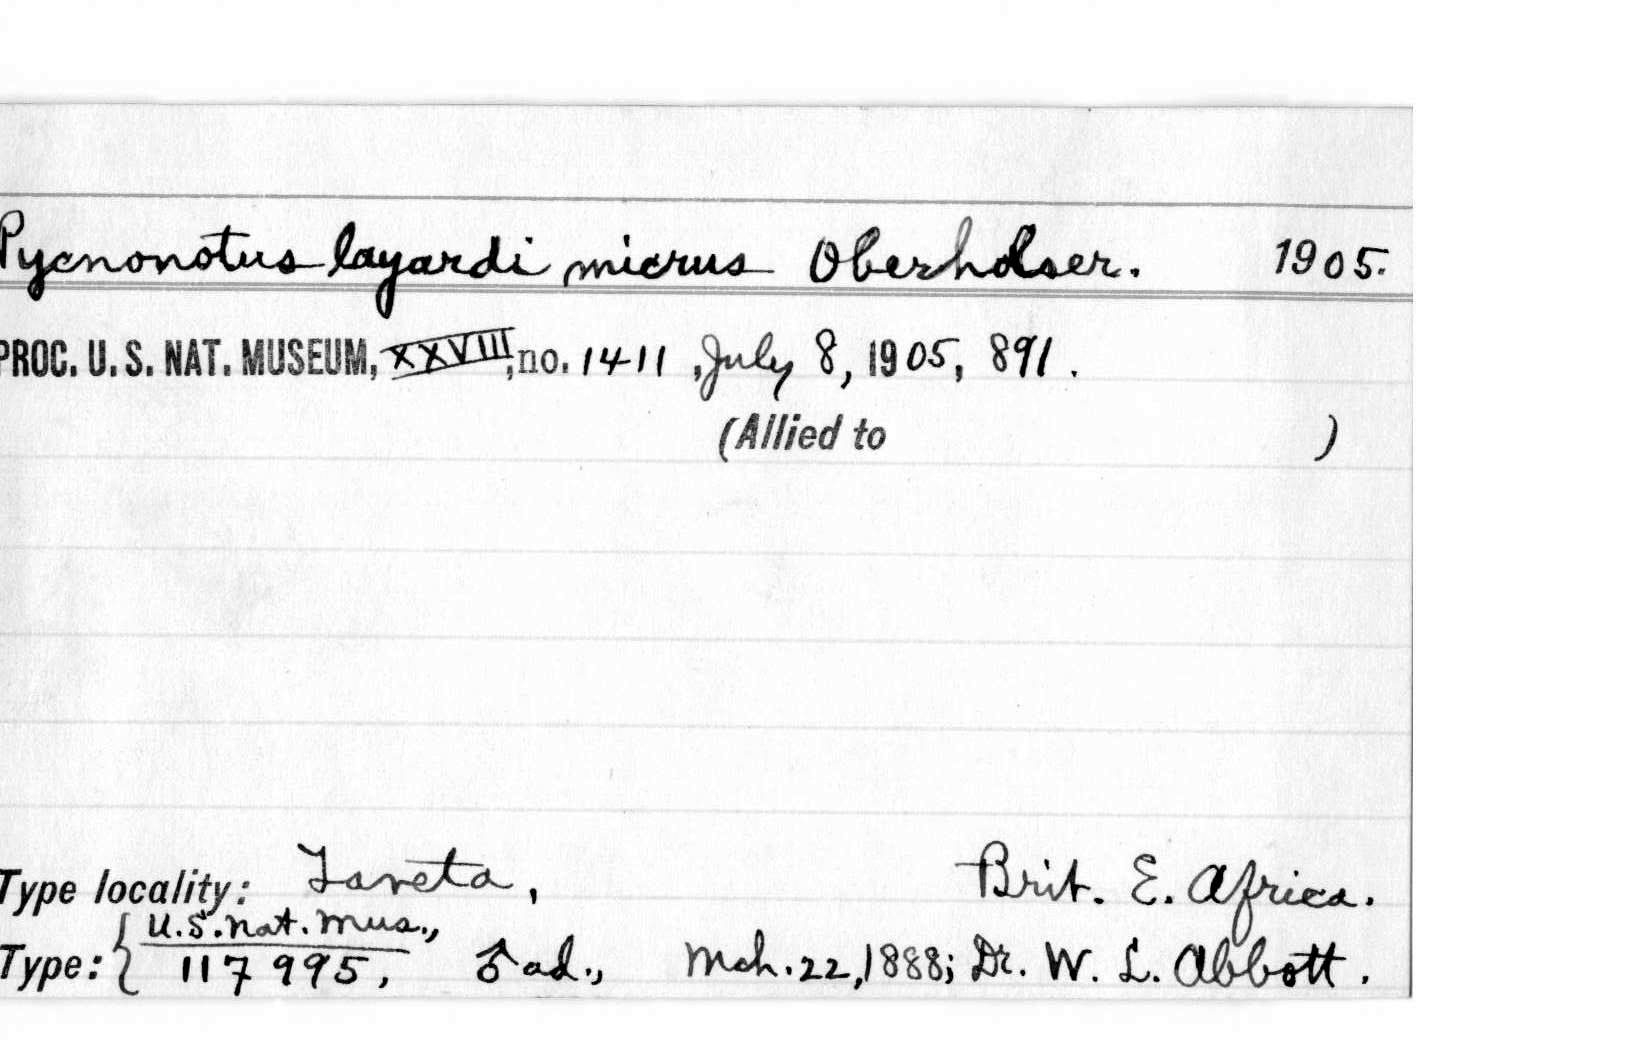 Pycnonotus layardi micrus Oberholser. 1905.
PROC. U. S. NAT. MUSEUM, XXVIII, no. 1411, July 8, 1905, 891.
(Allied to )
Type locality: Taveta, Brit. E. Africa.
U.S. Nat. Mus.,
Type: { 117995, ♂ ad., Mch. 22, 1888; Dr. W. L. Abbott.